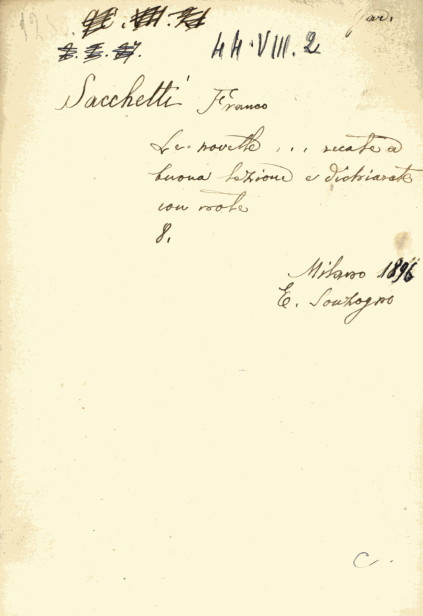 44. VIII. 2
Sacchetti Franco
Le novelle ... recate a
buona lezione e dichiarate
con note
8.
Milano 1896
E. Sonzogno
C.